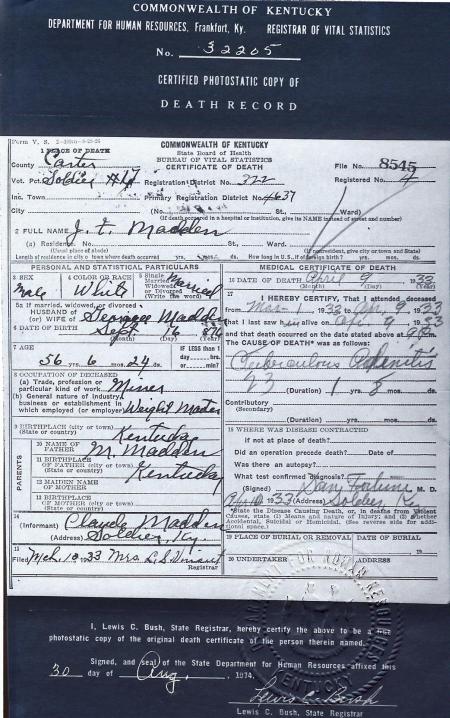 COMMONWEALTH OF KENTUCKY
DEPARTMENT FOR HUMAN RESOURCES, Frankfort, Ky. REGISTRAR OF VITAL STATISTICS
No. 32205
CERTIFIED PHOTOSTATIC COPY OF
DEATH RECORD
Form V. S.
1 PLACE OF DEATH
COMMONWEALTH OF KENTUCKY
State Board of Health
BUREAU OF VITAL STATISTICS
CERTIFICATE OF DEATH
County Carter
File No. 8545
Vot. Pct. Soldier Registration District No. 322 Registered No. 4
Inc. Town Primary Registration District No. 6637
City (No. St., Ward)
(If death occurred in a hospital or institution, give its NAME instead of street and number)
2 FULL NAME J. T. Madden
(a) Residence. No. St., Ward.
(Usual place of abode) (If nonresident, give city or town and State)
Length of residence in city or town where death occurred yrs. mos. ds. How long in U.S., if of foreign birth? yrs. mos. ds.
PERSONAL AND STATISTICAL PARTICULARS
3 SEX 4 COLOR OR RACE 5 Single Married Widowed or Divorced (Write the word)
Male White Married
5a If married, widowed, or divorced
HUSBAND of
(or) WIFE of Madden
6 DATE OF BIRTH Sept 16 1876
(Month) (Day) (Year)
7 AGE IF LESS than 1
56 yrs. 6 mos. 24 ds. day, hrs. or min.
8 OCCUPATION OF DECEASED
(a) Trade, profession or
particular kind of work Miner
(b) General nature of industry,
business or establishment in
which employed (or employer) Weight
9 BIRTHPLACE (city or town)
(State or country) Kentucky
PARENTS
10 NAME OF
FATHER M. Madden
11 BIRTHPLACE
OF FATHER (city or town)
(State or country) Kentucky
12 MAIDEN NAME
OF MOTHER
13 BIRTHPLACE
OF MOTHER (city or town)
(State or country)
14
(Informant) Claude Madden
Soldier, Ky.
15
Filed Mch. 10 1933 Mrs.
Registrar
MEDICAL CERTIFICATE OF DEATH
16 DATE OF DEATH April 9 1933
(Month) (Day) (Year)
17
I HEREBY CERTIFY, That I attended deceased
from Mar 1 1933 to Apr 9 1933
that I last saw h alive on Apr 9 1933
and that death occurred on the date stated above at
THE CAUSE OF DEATH* was as follows:
Tuberculous
23 (Duration) 1 yrs. 8 mos. ds.
Contributory
(Secondary)
(Duration) yrs. mos. ds.
18 WHERE WAS DISEASE CONTRACTED
if not at place of death?
Did an operation precede death? Date of
Was there an autopsy?
What test confirmed diagnosis?
(Signed) M. D.
1933 (Address) Soldier Ky.
*State the Disease Causing Death, or, in deaths from Violent Causes, state (1) Means and nature of Injury; and (2) whether Accidental, Suicidal or Homicidal. (See reverse side for additional space.)
19 PLACE OF BURIAL OR REMOVAL DATE OF BURIAL
19
20 UNDERTAKER ADDRESS
I, Lewis C. Bush, State Registrar, hereby certify the above to be a
photostatic copy of the original death certificate of the person therein named.
Signed, and seal of the State Department for Human Resources affixed this
30 day of Aug., 1974.
Lewis C. Bush
Lewis C. Bush, State Registrar